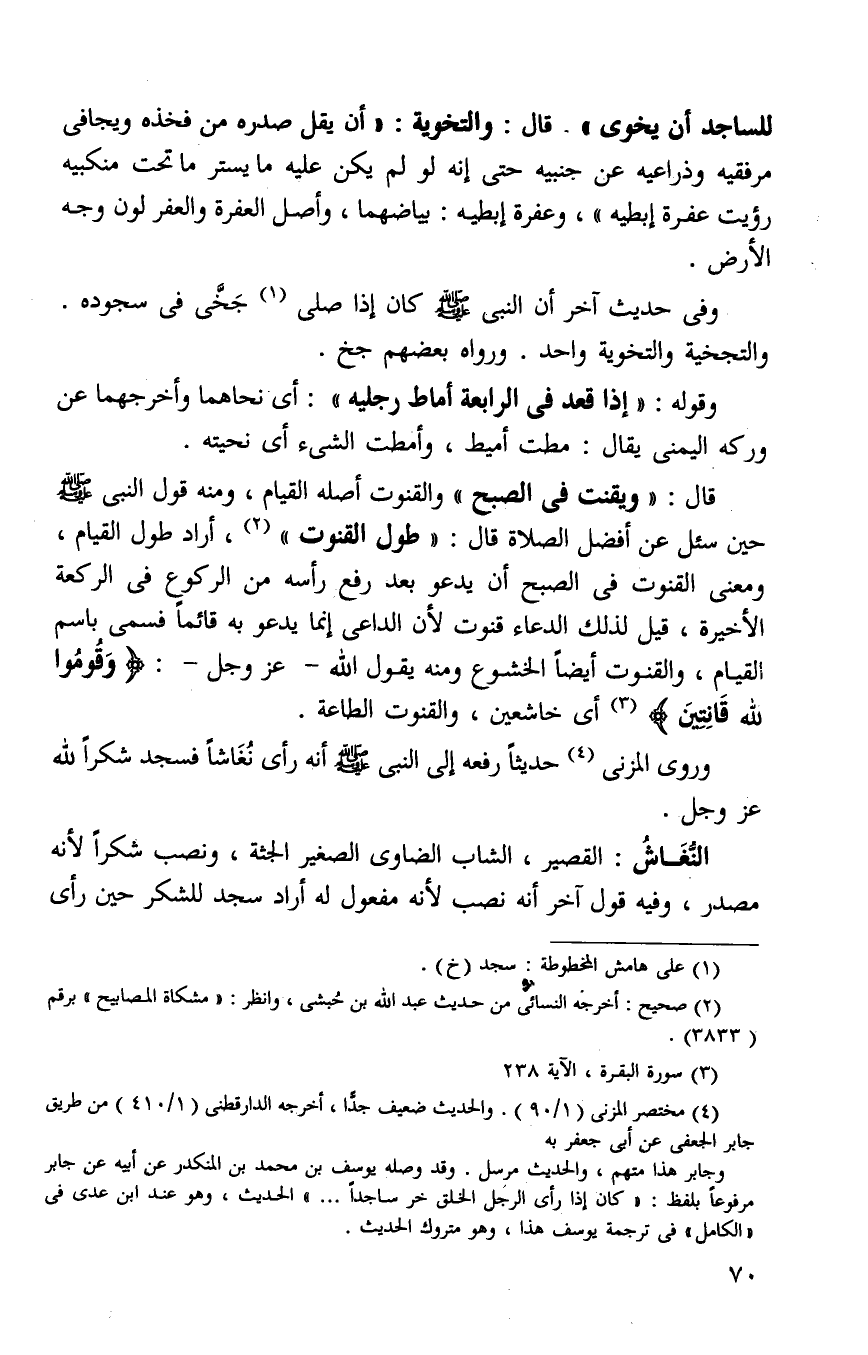 للساجد أن يخوى » . قال : والتخوية : « أن يقل صدره من فخذه ويجافى
مرفقيه وذراعيه عن جنبيه حتى إنه لو لم يكن عليه ما يستر ما تحت منكبيه
رؤيت عفرة إبطيه » ، وعفرة إبطيه : بياضهما ، وأصل العفرة والعفر لون وجه
الأرض .
وفى حديث آخر أن النبى ﷺ كان إذا صلى (١) جَخَّى فى سجوده .
والتجخية والتخوية واحد . ورواه بعضهم جخ .
وقوله : « إذا قعد فى الرابعة أماط رجليه » : أى نحاهما وأخرجهما عن
وركه اليمنى يقال : مطت أميط ، وأمطت الشىء أى نحيته .
قال : « ويقنت فى الصبح » والقنوت أصله القيام ، ومنه قول النبى ﷺ
حين سئل عن أفضل الصلاة قال : « طول القنوت » (٢) ، أراد طول القيام ،
ومعنى القنوت فى الصبح أن يدعو بعد رفع رأسه من الركوع فى الركعة
الأخيرة ، قيل لذلك الدعاء قنوت لأن الداعى إنما يدعو به قائماً فسمى باسم
القيام ، والقنوت أيضاً الخشوع ومنه يقول الله – عز وجل – : ﴿ وَقُومُوا
لله قَانِتِينَ ﴾ (٣) أى خاشعين ، والقنوت الطاعة .
وروى المزنى (٤) حديثاً رفعه إلى النبى ﷺ أنه رأى نُغَاشاً فسجد شكراً لله
عز وجل .
النُّغَاشُ : القصير ، الشاب الضاوى الصغير الجثة ، ونصب شكراً لأنه
مصدر ، وفيه قول آخر أنه نصب لأنه مفعول له أراد سجد للشكر حين رأى
(١) على هامش المخطوطة : سجد (خ) .
(٢) صحيح : أخرجه النسائى من حديث عبد الله بن حُبشى ، وانظر : « مشكاة المصابيح » برقم
( ٣٨٣٣) .
(٣) سورة البقرة ، الآية ٢٣٨
(٤) مختصر المزنى ( ٩٠/١ ) . والحديث ضعيف جدًّا ، أخرجه الدارقطنى ( ٤١٠/١ ) من طريق
جابر الجعفى عن أبى جعفر به
وجابر هذا متهم ، والحديث مرسل . وقد وصله يوسف بن محمد بن المنكدر عن أبيه عن جابر
مرفوعاً بلفظ : « كان إذا رأى الرجل الخلق خر ساجداً ... » الحديث ، وهو عند ابن عدى فى
«الكامل» فى ترجمة يوسف هذا ، وهو متروك الحديث .
٧٠